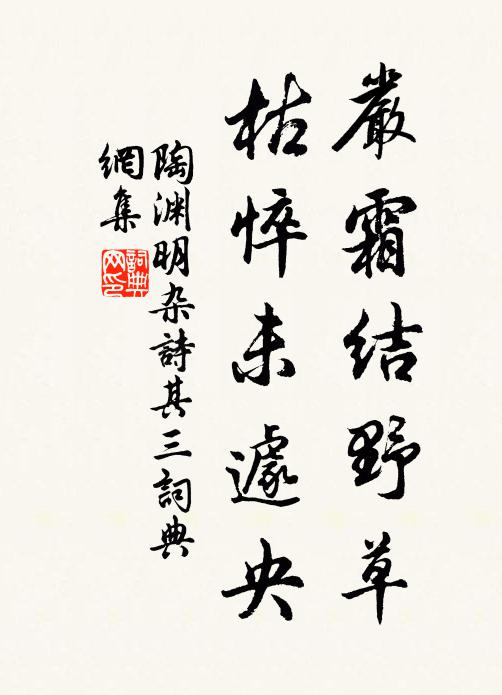 嚴霜結野草
枯悴未遽央
陶淵明杂詩其三詞典
網集
詞典
网印